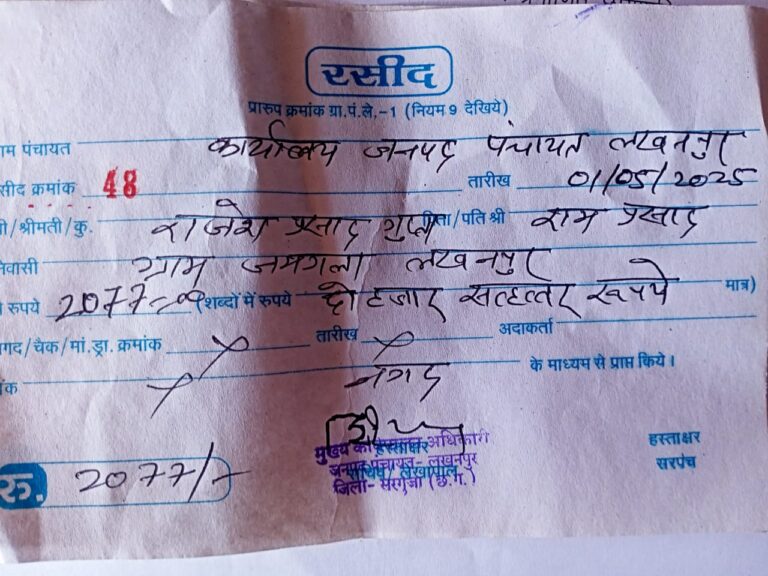 रसीद
प्रारुप क्रमांक ग्रा.पं.ले.-1 (नियम 9 देखिये)
ाम पंचायत कार्यालय जनपद पंचायत लखनपुर
सीद क्रमांक 48 तारीख 01/05/2025
ी/श्रीमती/कु. राजेश प्रसाद गुप्ता पिता/पति श्री राम प्रसाद
निवासी ग्राम जमगला लखनपुर
रुपये 2077=00 (शब्दों में रुपये दो हजार सतहत्तर रूपये मात्र)
गद/चैक/मां.ड्रा. क्रमांक तारीख अदाकर्ता
ंक नगद के माध्यम से प्राप्त किये।
मुख्य कार्यपालन अधिकारी
हस्ताक्षर
जनपद पंचायत- लखनपुर
सचिव/लेखापाल
जिला- सरगुजा (छ.ग.)
हस्ताक्षर
सरपंच
रु. 2077/-